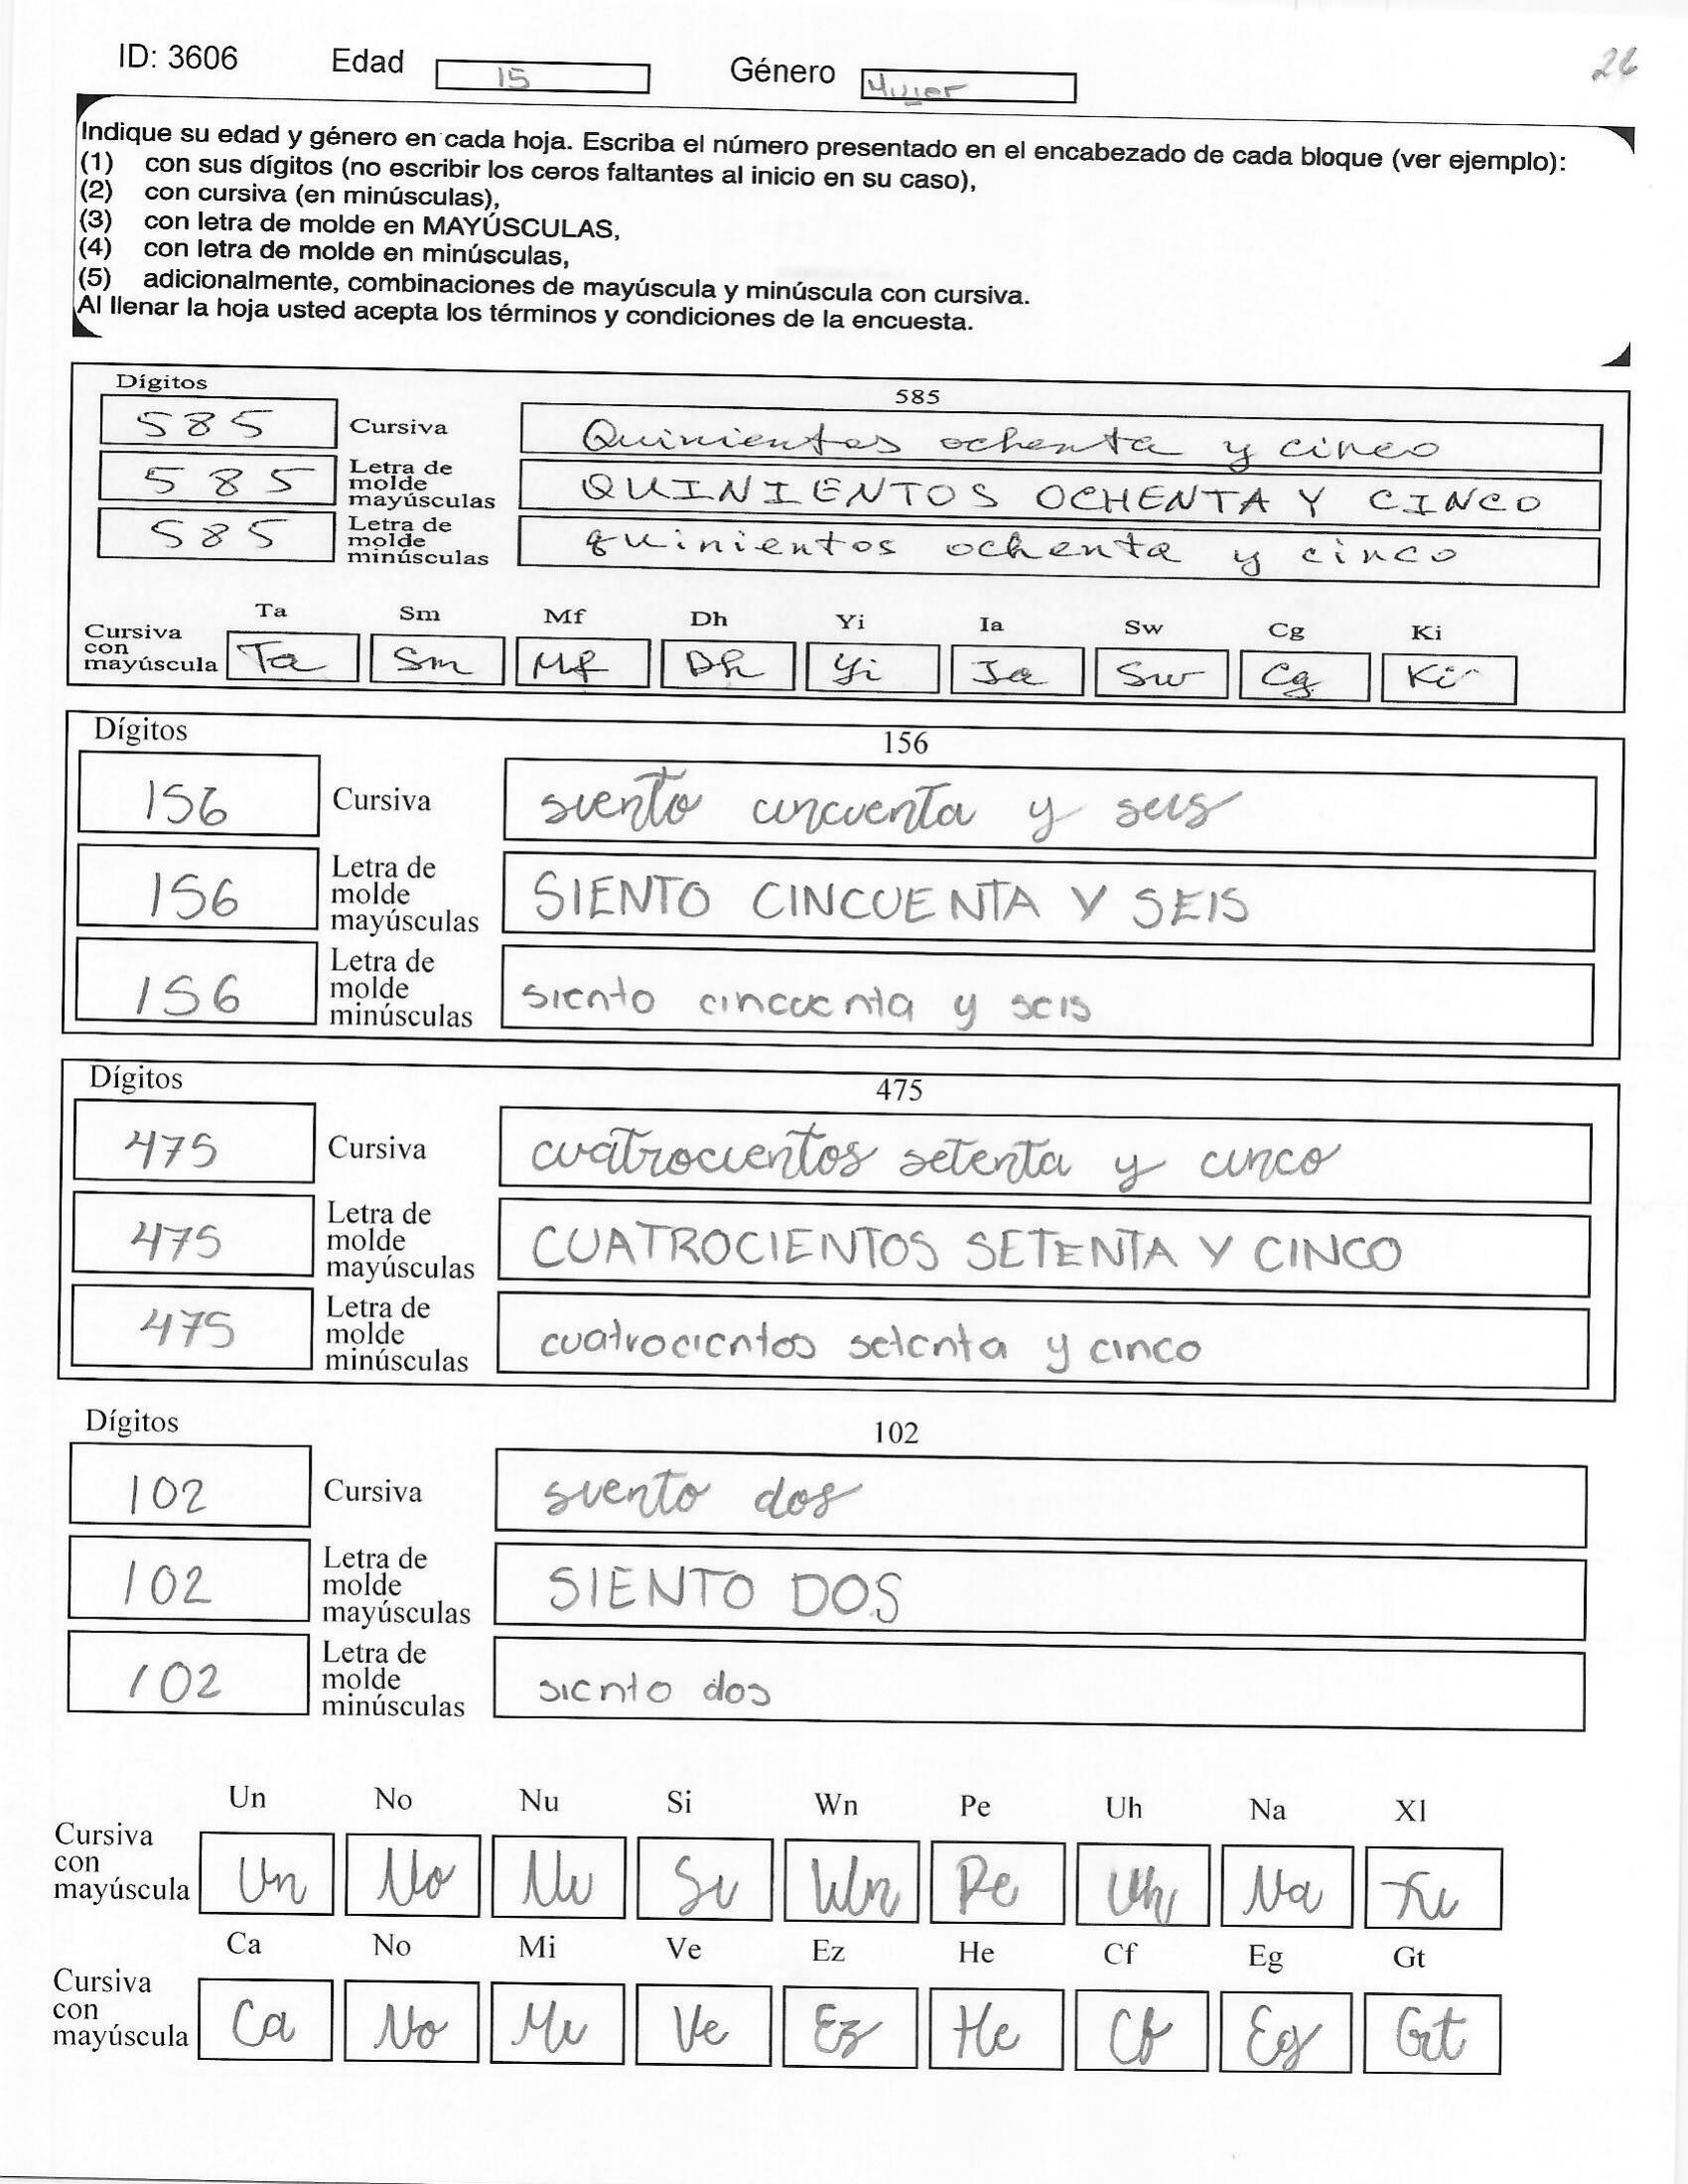 ID: 3606 Edad 15 Género Mujer 26
Indique su edad y género en cada hoja. Escriba el número presentado en el encabezado de cada bloque (ver ejemplo):
(1) con sus dígitos (no escribir los ceros faltantes al inicio en su caso),
(2) con cursiva (en minúsculas),
(3) con letra de molde en MAYÚSCULAS,
(4) con letra de molde en minúsculas,
(5) adicionalmente, combinaciones de mayúscula y minúscula con cursiva.
Al llenar la hoja usted acepta los términos y condiciones de la encuesta.
Dígitos 585
585 Cursiva Quinientos ochenta y cinco
585 Letra de molde mayúsculas QUINIENTOS OCHENTA Y CINCO
585 Letra de molde minúsculas quinientos ochenta y cinco
Ta Sm Mf Dh Yi Ia Sw Cg Ki
Cursiva con mayúscula Ta Sm Mf Dh Yi Ia Sw Cg Ki
Dígitos 156
156 Cursiva siento cincuenta y seis
156 Letra de molde mayúsculas SIENTO CINCUENTA Y SEIS
156 Letra de molde minúsculas siento cincuenta y seis
Dígitos 475
475 Cursiva cuatrocientos setenta y cinco
475 Letra de molde mayúsculas CUATROCIENTOS SETENTA Y CINCO
475 Letra de molde minúsculas cuatrocientos setenta y cinco
Dígitos 102
102 Cursiva siento dos
102 Letra de molde mayúsculas SIENTO DOS
102 Letra de molde minúsculas siento dos
Un No Nu Si Wn Pe Uh Na Xl
Cursiva con mayúscula Un No Nu Si Wn Pe Uh Na
Ca No Mi Ve Ez He Cf Eg Gt
Cursiva con mayúscula Ca No Mi Ve Ez He Cf Eg Gt